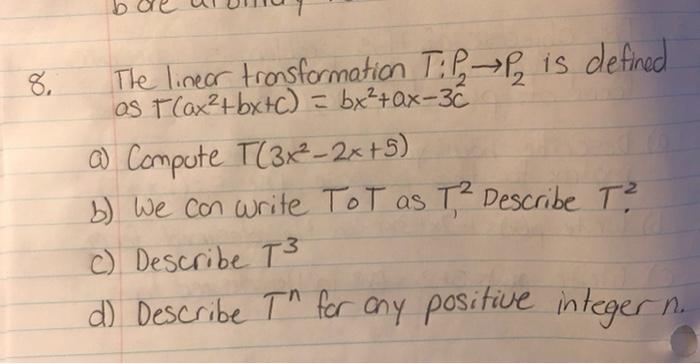 b are
8. The linear transformation T:P₂→P₂ is defined
as T(ax²+bx+c) = bx²+ax-3c
a) Compute T(3x²-2x+5)
b) We can write T∘T as T². Describe T².
c) Describe T³
d) Describe Tⁿ for any positive integer n.